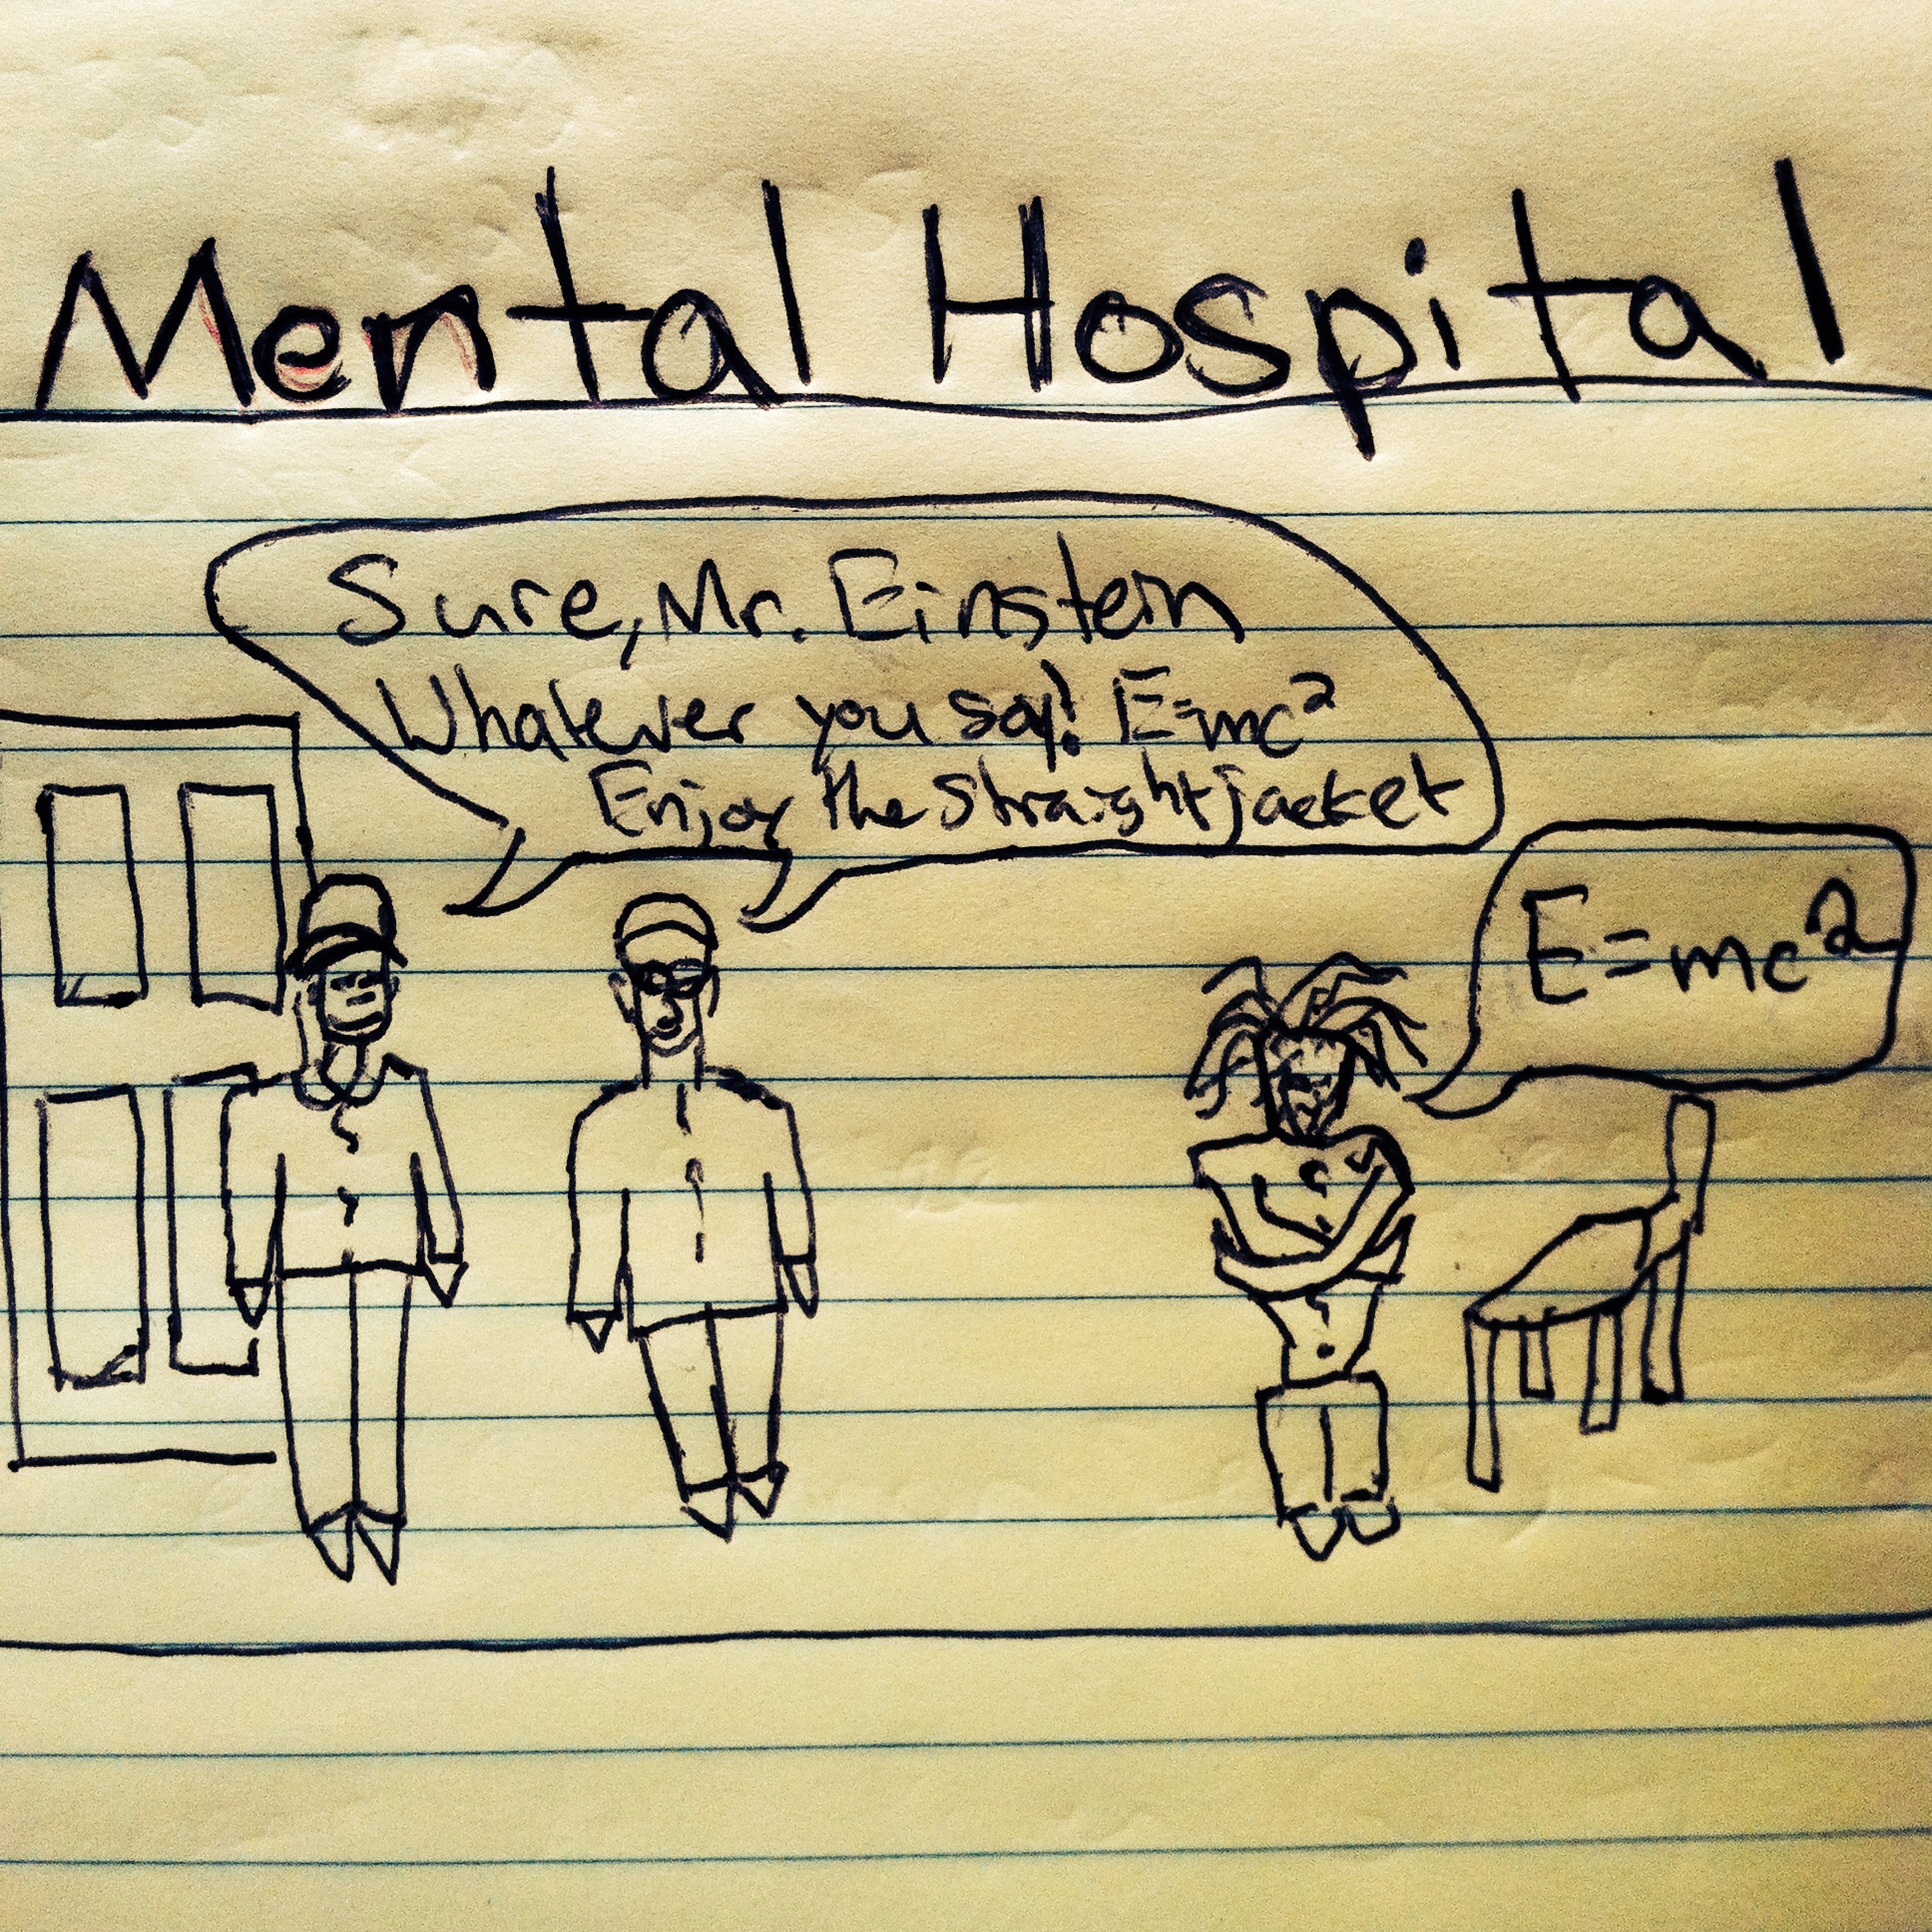 Mental Hospital
Sure, Mr. Einstein
Whatever you say! E=mc²
Enjoy the Straightjacket
E=mc²